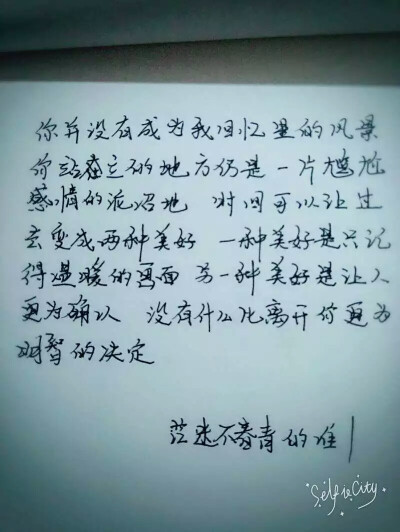 你并没有成为我回忆里的风景
你站在立的地方仍是一片尴尬
感情的泥沼地 时间可以让过
去变成两种美好 一种美好是只记
得温暖的画面 另一种美好是让人
更为确认 没有什么比离开你更为
明智的决定
茫迷不喜青的谁
Selfie City